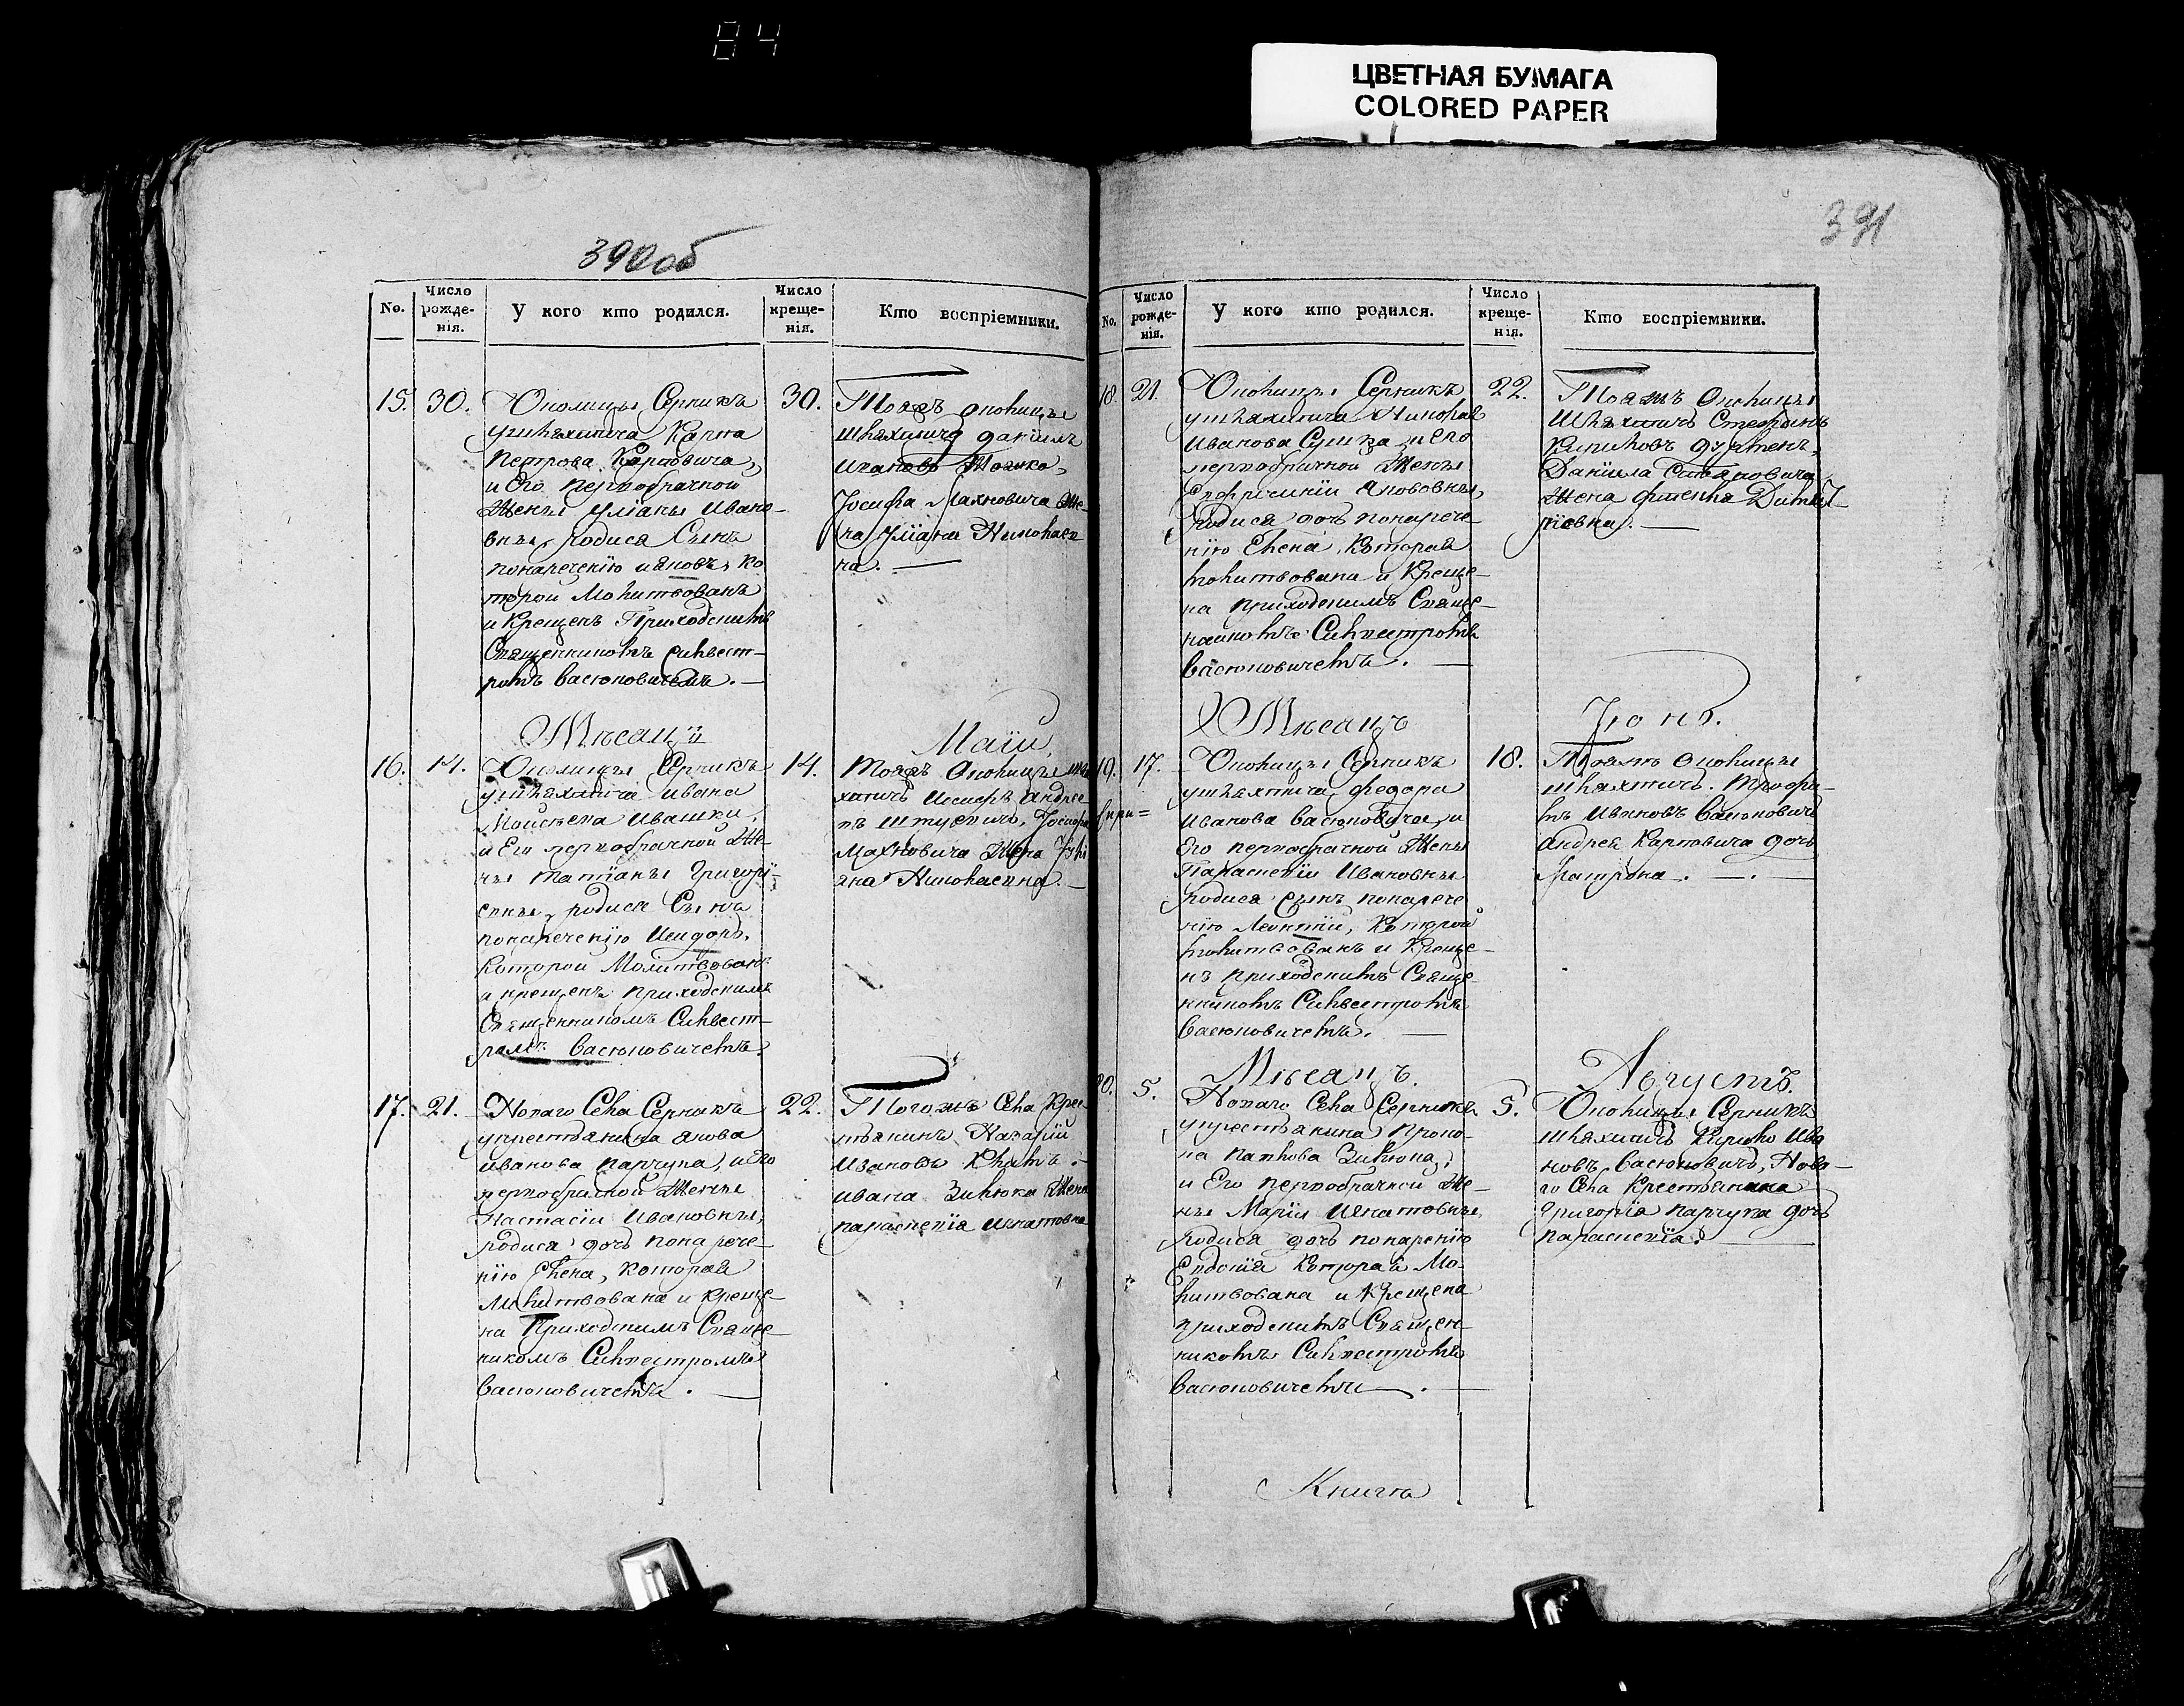 84
ЦВЕТНАЯ БУМАГА
COLORED PAPER
390 об
No.
Число рожде-нія.
У кого кто родился.
Число креще-нія.
Кто воспріемники.
15.
30.
Околицы Серникъ
у шляхтича Карпа
Петрова Карповича,
и Его первобрачной
Жены Уліаны Ивано-
вны, родися Сынъ
понаречению Ияковъ, ко
торой Молитвованъ
и Крещенъ Приходскимъ
Священникомъ Силвест-
ромъ Васюковичемъ.
30.
Тояжъ околицы
шляхтичъ Даніилъ
Ивановъ
Іосифа Махновича Же-
на Уліана Николаев
на.
Мѣсацъ
Маій
16.
14.
Околицы Серникъ
у шляхтича Ивана
Моисѣева Ивашки,
и Его первобрачной Же-
ны Татіаны Григорі-
евны, родися Сынъ
понаречению Исидоръ,
Которой Молитвованъ
и крещенъ приходскимъ
Священникомъ Силвест-
ромъ Васюковичемъ.
14.
Тояжъ Околицы шля
хтичъ Иосифъ Андрее
въ Іосифа
Махновича Жена Улі
яна Николаевна.
17.
21.
Новаго Села Серникъ
у крестьянина Якова
Иванова Парчука, и Его
первобрачной Жены
Настасіи Ивановны,
родися дочь понарече-
нію Елена, Которая
Молитвована и креще-
на Приходскимъ Священ-
никомъ Силвестромъ
Васюковичемъ.
22.
Тогожъ Села Крес-
тьянинъ Назарій
Ивановъ
Ивана Зилюка Жена
параскевія Игнатовна
391
No.
Число рожде-нія.
У кого кто родился.
Число креще-нія.
Кто воспріемники.
18.
21.
Околицы Серникъ
у шляхтича Никорая
Иванова и Его
первобрачной Жены
Евфросиніи Якововны,
родися дочь понарече-
нію Елена, Которая
молитвована и Креще-
на приходскимъ Свяще-
нникомъ Силвестромъ
Васюковичемъ.
22.
Тояжъ Околицы
Шляхтичъ Стефанъ
Кириловъ
Даніила Степановича
Жена
ріевна.
Мѣсацъ
Іюнь.
19.
17.
Околицы Серникъ
у шляхтича Федора
Иванова Васюковича, и
Его первобрачной Жены
Параскевіи Ивановны
родися сынъ понарече
нію Леонтій, Которой
молитвованъ и Креще-
нъ приходскимъ Свяще-
нникомъ Силвестромъ
Васюковичемъ.
18.
Тояжъ Околицы
шляхтичъ Трофи-
мъ Ивановъ Васюковичъ
Андрея Карповича дочь
Матрона.
Мѣсацъ.
Августъ.
20.
5.
Новаго Села Серникъ
у крестьянина Проко-
па Павлова Зилюка,
и Его первобрачной Же-
ны Маріи Игнатовны,
родися дочь понаренію
Евдокія Которая Мо-
литвована и Крещена
приходскимъ Священ-
никомъ Силвестромъ
Васюковичемъ.
5.
Околицы Серникъ
шляхтичъ Кирило Ива
новъ Васюковичъ, Нова-
го Села Крестьянина
Григорія парчука дочь
параскевія.
Книга